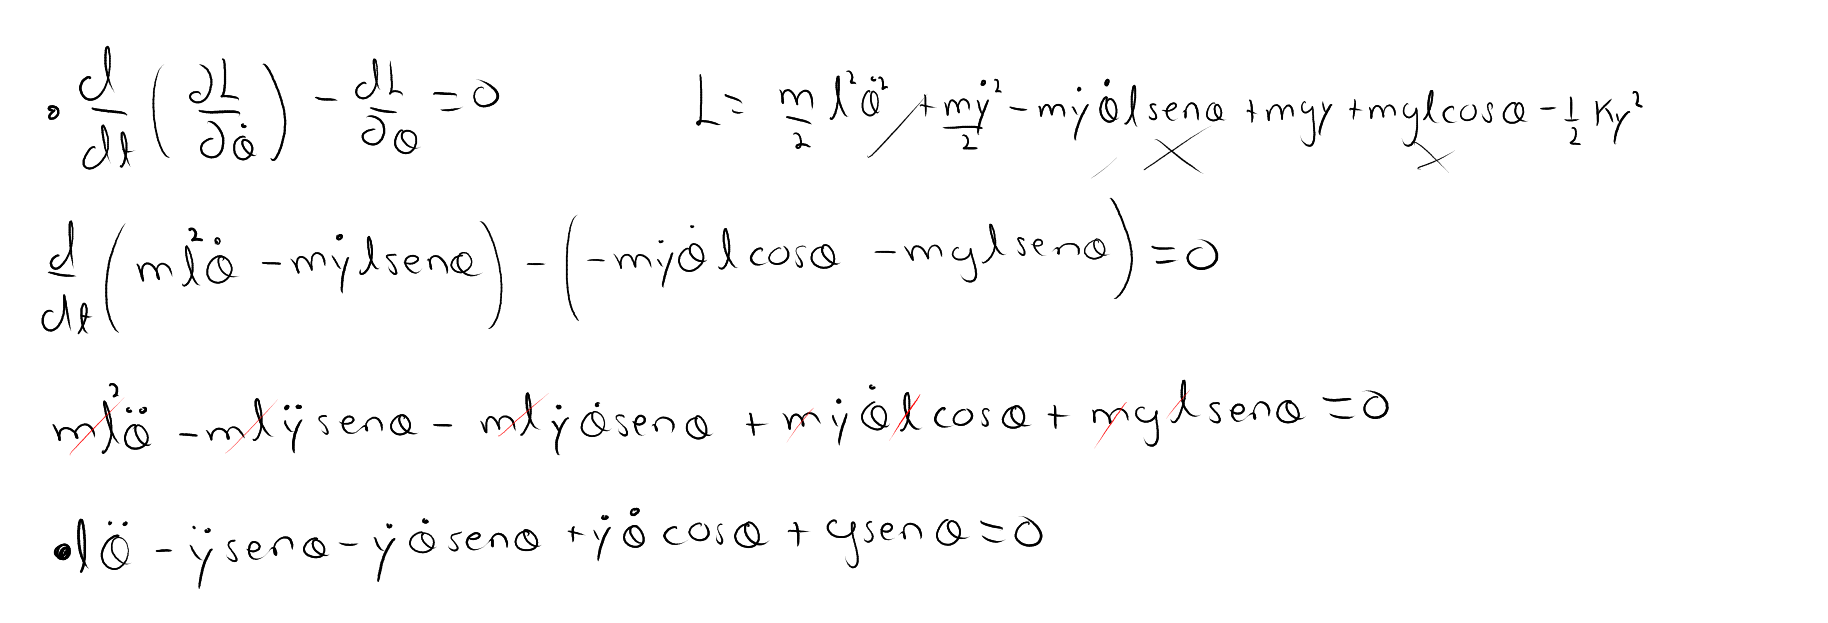 • d/dt (∂L/∂θ̇) - dL/∂θ = 0    L = m/2 l²θ̇² + mẏ²/2 - mẏθ̇lsenθ + mgy + mglcosθ - 1/2 Ky²
d/dt (ml²θ̇ - mẏlsenθ) - (-mẏθ̇lcosθ - mglsenθ) = 0
ml²θ̈ - mlÿsenθ - mlẏθ̇senθ + mẏθ̇lcosθ + mglsenθ = 0
• lθ̈ - ÿsenθ - ẏθ̇senθ + ẏθ̇cosθ + gsenθ = 0